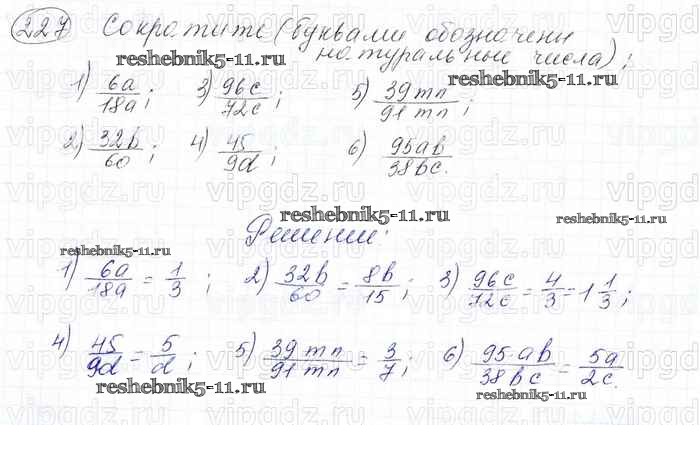 227 Сократите (буквами обозначены
натуральные числа);
reshebnik5-11.ru
reshebnik5-11.ru
1) 6a/18a; 3) 96c/72c; 5) 39mn/91mn;
2) 32b/60; 4) 45/9d; 6) 95ab/38bc.
reshebnik5-11.ru
reshebnik5-11.ru
Решение:
reshebnik5-11.ru
1) 6a/18a = 1/3; 2) 32b/60 = 8b/15; 3) 96c/72c = 4/3 = 1 1/3;
4) 45/9d = 5/d; 5) 39mn/91mn = 3/7; 6) 95ab/38bc = 5a/2c.
reshebnik5-11.ru
reshebnik5-11.ru
vipgdz.ru